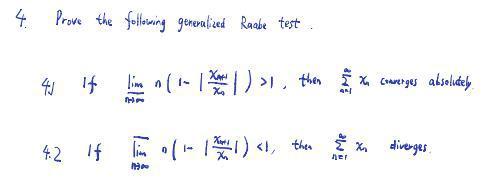 4. Prove the following generalized Raabe test.
4.1 If \underline{\lim}_{n→∞} n(1 - |x_{n+1}/x_n|) > 1, then ∑_{n=1}^{∞} x_n converges absolutely.
4.2 If \overline{\lim}_{n→∞} n(1 - |x_{n+1}/x_n|) < 1, then ∑_{n=1}^{∞} x_n diverges.